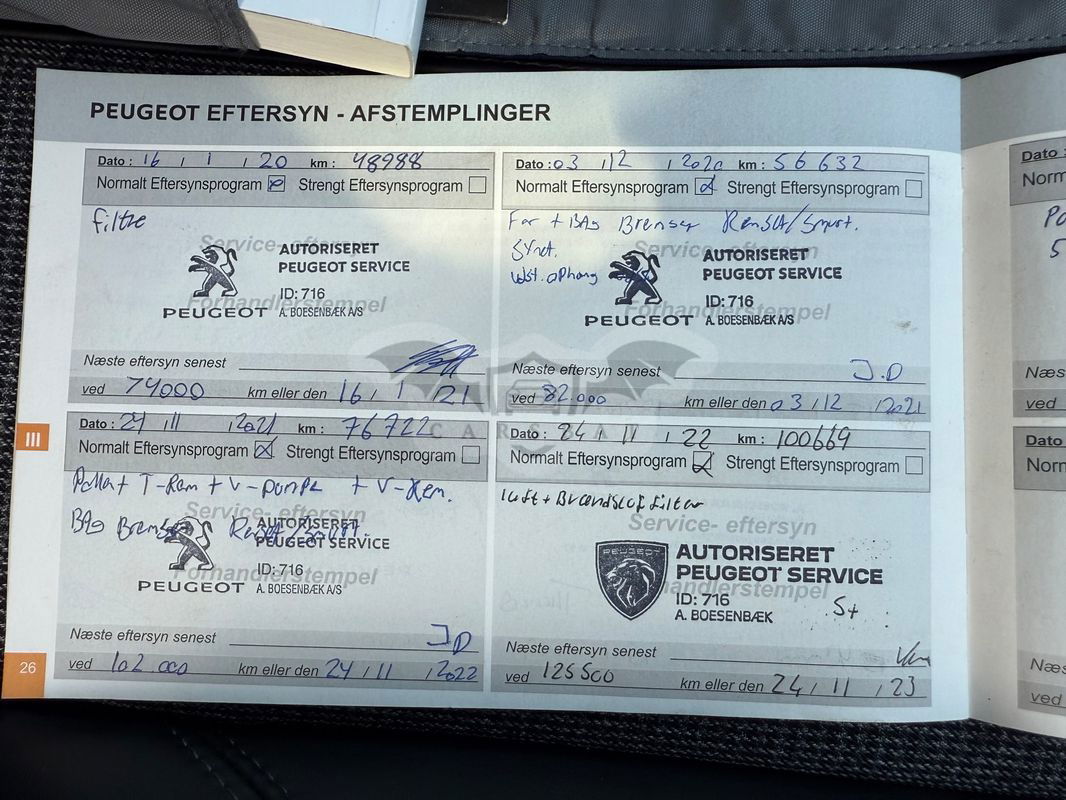 PEUGEOT EFTERSYN - AFSTEMPLINGER
Dato : 16 / 1 / 20 km : 48988
Normalt Eftersynsprogram Strengt Eftersynsprogram
filtre
Service- eftersyn
AUTORISERET
PEUGEOT SERVICE
ID: 716
Forhandlerstempel
PEUGEOT A. BOESENBÆK A/S
Næste eftersyn senest
ved 74000 km eller den 16 / 1 / 21
Dato : 03 / 12 / 2020 km : 56 632
Normalt Eftersynsprogram Strengt Eftersynsprogram
For + BAg Bremser Renset/Smurt.
Synet.
Service- eftersyn
AUTORISERET
PEUGEOT SERVICE
ID: 716
Forhandlerstempel
PEUGEOT A. BOESENBÆK A/S
Næste eftersyn senest
J.D
ved 82.000 km eller den 03 / 12 / 2021
CARSTAD
III
Dato : 24 / 11 / 2021 km : 76722
Normalt Eftersynsprogram Strengt Eftersynsprogram
Pollen + T-Rem + V-pumpe + V-Rem.
BAg Bremser Renset/Smurt.
Service- eftersyn
AUTORISERET
PEUGEOT SERVICE
ID: 716
Forhandlerstempel
PEUGEOT A. BOESENBÆK A/S
Næste eftersyn senest
JD
ved 102.000 km eller den 24 / 11 / 2022
Dato : 24 / 11 / 22 km : 100669
Normalt Eftersynsprogram Strengt Eftersynsprogram
luft + Brændstof filter
Service- eftersyn
PEUGEOT
AUTORISERET
PEUGEOT SERVICE
Forhandlerstempel
ID: 716
A. BOESENBÆK
S+
Næste eftersyn senest
ved 125500 km eller den 24 / 11 / 23
26
Dato
Norm
Po
5
Næs
ved
Dato
Norm
Næs
ved